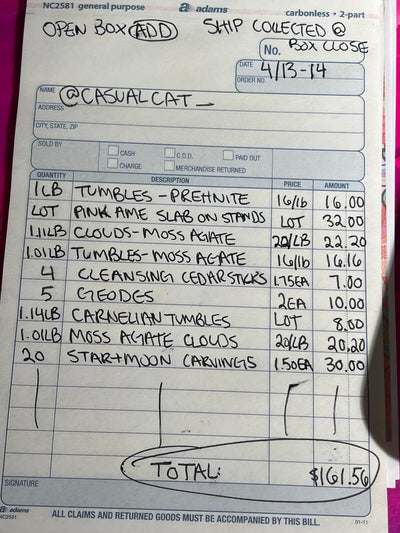 NC2581 general purpose adams carbonless • 2-part
OPEN BOX ADD SHIP COLLECTED @
No. BOX CLOSE
DATE 4/13-14
ORDER NO.
NAME @CASUALCAT_
ADDRESS
CITY, STATE, ZIP
SOLD BY CASH C.O.D. PAID OUT
CHARGE MERCHANDISE RETURNED
QUANTITY DESCRIPTION PRICE AMOUNT
1LB TUMBLES - PREHNITE 16/lb 16.00
LOT PINK AME SLAB ON STANDS LOT 32.00
1.11LB CLOUDS - MOSS AGATE 20/LB 22.20
1.01LB TUMBLES - MOSS AGATE 16/lb 16.16
4 CLEANSING CEDAR STICKS 1.75EA 7.00
5 GEODES 2EA 10.00
1.14LB CARNELIAN TUMBLES LOT 8.00
1.01LB MOSS AGATE CLOUDS 20/LB 20.20
20 STAR+MOON CARVINGS 1.50EA 30.00
TOTAL: $161.56
SIGNATURE
adams
NC2581 ALL CLAIMS AND RETURNED GOODS MUST BE ACCOMPANIED BY THIS BILL. 01-11